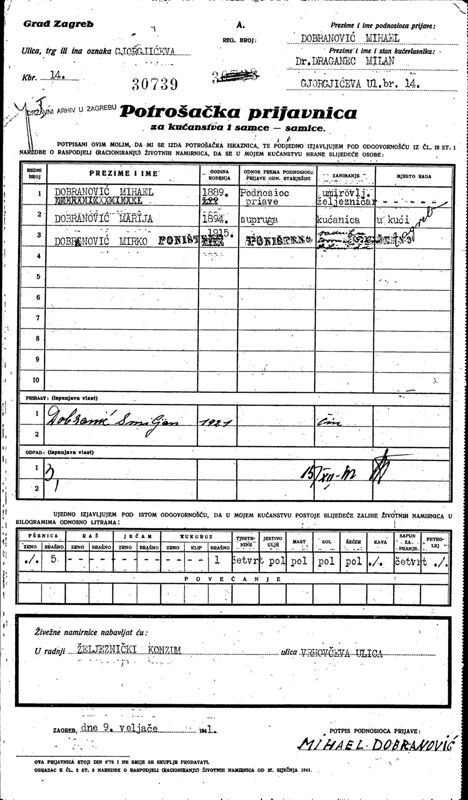 Grad Zagreb
A.
REG. BROJ:
Prezime i ime podnosioca prijave:
DOBRANOVIĆ MIHAEL
Ulica, trg ili ina oznaka GJORGJIĆEVA
Prezime i ime i stan kućevlasnika:
Dr. DRAGANEC MILAN
Kbr. 14.
30739
GJORGJIĆEVA Ul. br. 14.
DRŽAVNI ARHIV U ZAGREBU
Potrošačka prijavnica
za kućanstva i samce – samice.
POTPISANI OVIM MOLIM, DA MI SE IZDA POTROŠAČKA ISKAZNICA, TE PODJEDNO IZJAVLJUJEM POD ODGOVORNOŠĆU IZ ČL. 18 ST. 1
NAREDBE O RASPODJELI (RACIONIRANJU) ŽIVOTNIH NAMIRNICA, DA SE U MOJEM KUĆANSTVU HRANE SLIJEDEĆE OSOBE:
REDNI BROJ PREZIME I IME GODINA ROĐENJA ODNOS PREMA PODNOSIOCU PRIJAVE ODN. STARJEŠINI ZANIMANJE MJESTO RADA
1 DOBRANOVIĆ MIHAEL 1889. Podnosioc priave umirovlj. željezničar
2 DOBRANOVIĆ MARIJA 1894. supruga kućanica u kući
3 DOBRANOVIĆ MIRKO PONIŠTENO 1915. PONIŠTENO Zagreb
4
5
6
7
8
9
10
PRIRAST: (ispunjava vlast)
1 Smiljan 1921
2
OTPAD: (ispunjava vlast)
1 3,
2
UJEDNO IZJAVLJUJEM POD ISTOM ODGOVORNOŠĆU, DA U MOJEM KUĆANSTVU POSTOJE SLIJEDEĆE ZALIHE ŽIVOTNIH NAMIRNICA U
KILOGRAMIMA ODNOSNO LITRAMA:
PŠENICA RAŽ JEČAM KUKURUZ TJESTENINE JESTIVO ULJE MAST SOL ŠEĆER KAVA SAPUN ZA PRANJE PETROLEJ
ZRNO BRAŠNO ZRNO BRAŠNO ZRNO BRAŠNO ZRNO KLIP BRAŠNO
./. 5 - - - - - - 1 četvrt pol pol pol pol ./. četvrt ./.
POVEĆANJE
Živežne namirnice nabavljat ću:
U radnji ŽELJEZNIČKI KONZUM ulica VRHOVČEVA ULICA
ZAGREB, dne 9. veljače 1941.
POTPIS PODNOSIOCA PRIJAVE:
MIHAEL DOBRANOVIĆ
OVA PRIJAVNICA STOJI DIN 0'75 I NE SMIJE SE SKUPLJE PRODAVATI.
OBRAZAC K ČL. 2 ST. 8 NAREDBE O RASPODJELI (RACIONIRANJU) ŽIVOTNIH NAMIRNICA OD 27. SIJEČNJA 1941.